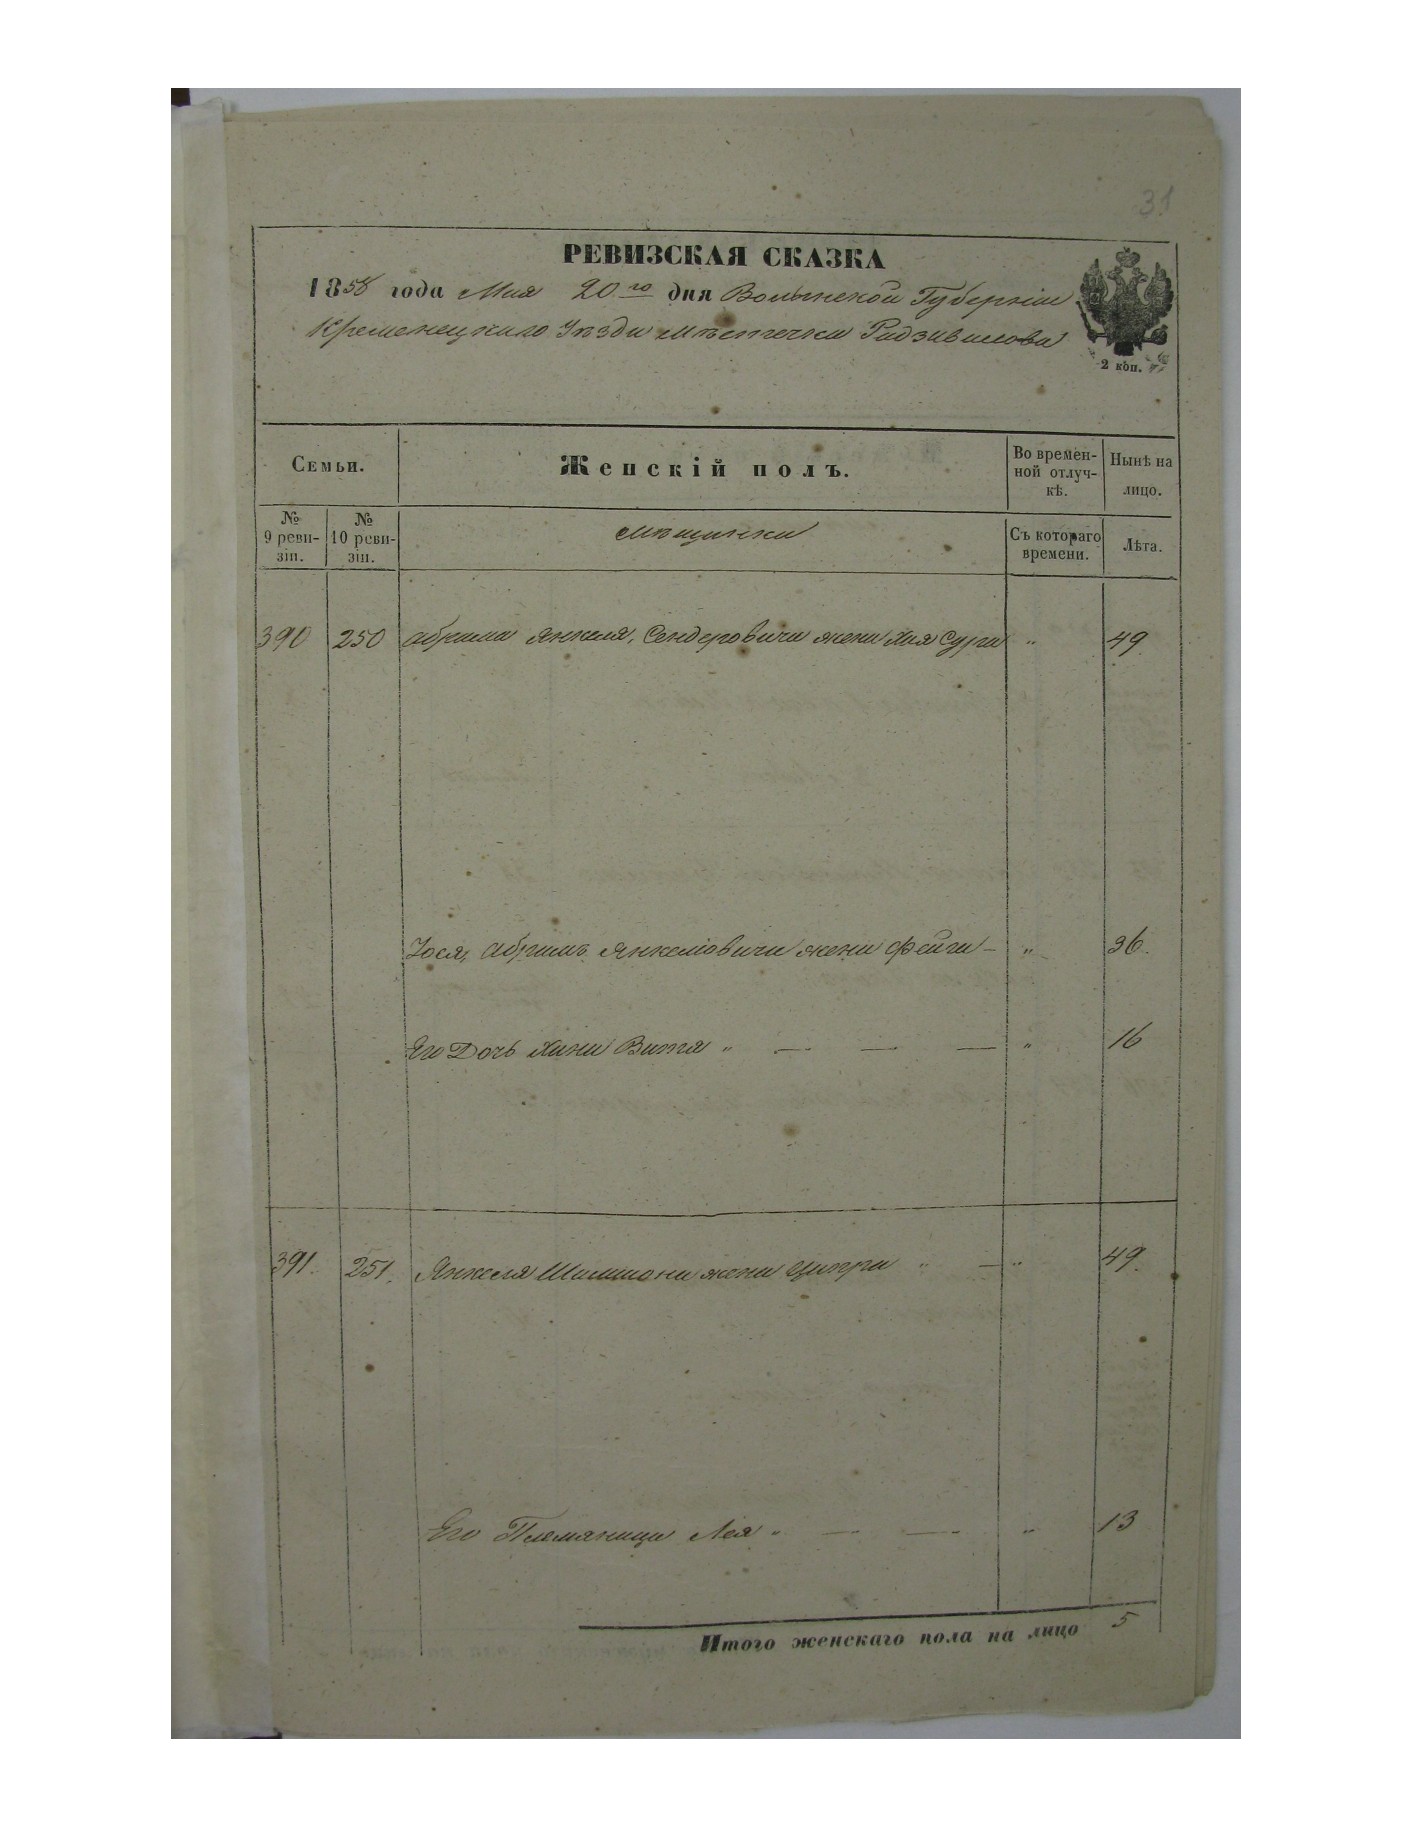 31
РЕВИЗСКАЯ СКАЗКА
1858 года Мая 20го дня Волынской Губерніи
Кременецкаго Уѣзда мѣстечка Радзивилова
2 коп.
Семьи.
Женскій полъ.
Во времен-
ной отлуч-
кѣ.
Нынѣ на
лицо.
№
9 реви-
зіи.
№
10 реви-
зіи.
мѣщанки
Съ котораго
времени.
Лѣта.
390 250 Абрама Янкеля, Сендеровича жена Хая Сура " 49
Іося, Абрамъ Янкеліовича жена Фейга — " 36.
Его Дочь Хана Витя " — — — " 16
391. 251. Янкеля Шамшона жена Ципра " — " 49.
Его Племяница Лея " — — " 13
Итого женскаго пола на лицо 5